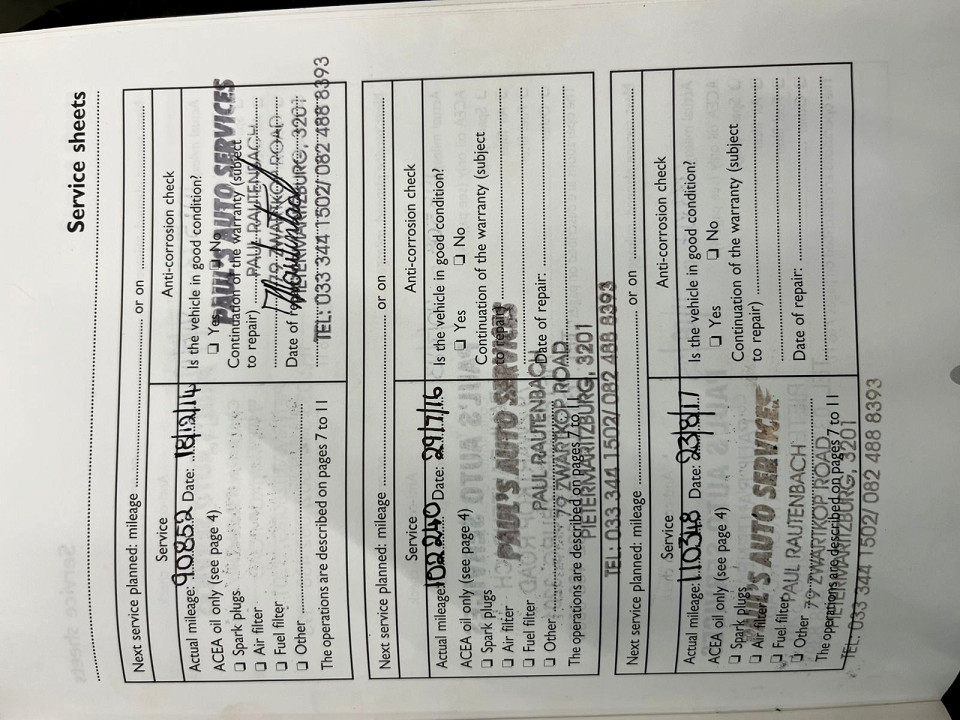 Service sheets
Next service planned: mileage or on
Service
Actual mileage: 90852 Date: 18/12/14
ACEA oil only (see page 4)
❑ Spark plugs
❑ Air filter
❑ Fuel filter
❑ Other
The operations are described on pages 7 to 11
Anti-corrosion check
Is the vehicle in good condition?
❑ Yes ❑ No
Continuation of the warranty (subject
to repair)
Date of repair:
PAUL'S AUTO SERVICES
PAUL RAUTENBACH
79 ZWARTKOP ROAD
PIETERMARITZBURG, 3201
TEL: 033 344 1502/ 082 488 8393
Next service planned: mileage or on
Service
Actual mileage: 102240 Date: 29/7/16
ACEA oil only (see page 4)
❑ Spark plugs
❑ Air filter
❑ Fuel filter
❑ Other
The operations are described on pages 7 to 11
Anti-corrosion check
Is the vehicle in good condition?
❑ Yes ❑ No
Continuation of the warranty (subject
to repair)
Date of repair:
PAUL'S AUTO SERVICES
PAUL RAUTENBACH
79 ZWARTKOP ROAD
PIETERMARITZBURG, 3201
TEL: 033 344 1502/ 082 488 8393
Next service planned: mileage or on
Service
Actual mileage: 110348 Date: 23/8/17
ACEA oil only (see page 4)
❑ Spark plugs
❑ Air filter
❑ Fuel filter
❑ Other
The operations are described on pages 7 to 11
Anti-corrosion check
Is the vehicle in good condition?
❑ Yes ❑ No
Continuation of the warranty (subject
to repair)
Date of repair:
PAUL'S AUTO SERVICES
PAUL RAUTENBACH
79 ZWARTKOP ROAD
PIETERMARITZBURG, 3201
TEL: 033 344 1502/ 082 488 8393